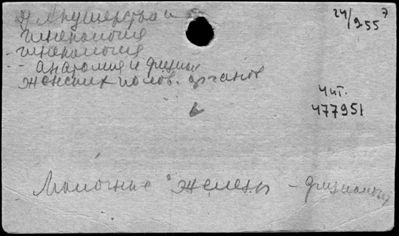 Акушерство и
гинекология
гинекология
- анатомия и физиол
женских полов. органов
24/955 7
Чит.
477951
Молочные железы - физиология